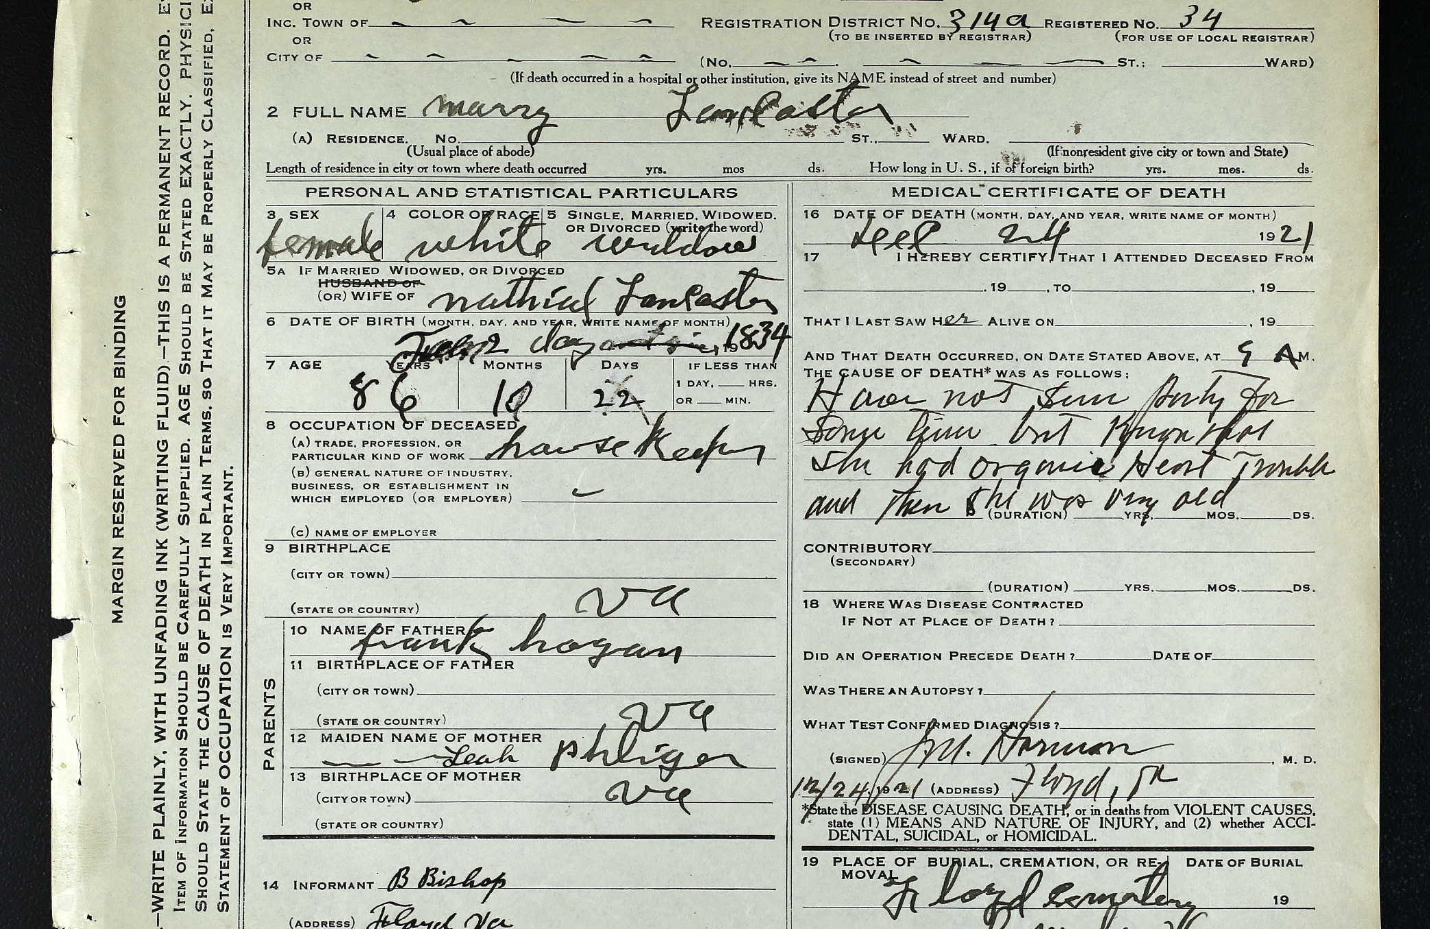 OR
INC. TOWN OF
REGISTRATION DISTRICT NO. 314a REGISTERED NO. 34
(TO BE INSERTED BY REGISTRAR) (FOR USE OF LOCAL REGISTRAR)
OR
CITY OF (NO. ST.; WARD)
(If death occurred in a hospital or other institution, give its NAME instead of street and number)
2 FULL NAME marry Lancaster
(A) RESIDENCE. NO. ST., WARD.
(Usual place of abode) (If nonresident give city or town and State)
Length of residence in city or town where death occurred yrs. mos ds. How long in U. S., if of foreign birth? yrs. mos. ds.
PERSONAL AND STATISTICAL PARTICULARS
3 SEX 4 COLOR OR RACE 5 SINGLE, MARRIED, WIDOWED.
OR DIVORCED (write the word)
female white widow
5A IF MARRIED WIDOWED, OR DIVORCED
HUSBAND OF
(OR) WIFE OF Lancaster
6 DATE OF BIRTH (MONTH, DAY, AND YEAR, WRITE NAME OF MONTH)
2 day 19 1834
7 AGE YEARS MONTHS DAYS IF LESS THAN
1 DAY, HRS.
OR MIN.
86 10 22
8 OCCUPATION OF DECEASED
(A) TRADE, PROFESSION, OR
PARTICULAR KIND OF WORK house keeper
(B) GENERAL NATURE OF INDUSTRY.
BUSINESS, OR ESTABLISHMENT IN
WHICH EMPLOYED (OR EMPLOYER)
(C) NAME OF EMPLOYER
9 BIRTHPLACE
(CITY OR TOWN)
(STATE OR COUNTRY) va
PARENTS
10 NAME OF FATHER
frank hogan
11 BIRTHPLACE OF FATHER
(CITY OR TOWN)
(STATE OR COUNTRY) va
12 MAIDEN NAME OF MOTHER
Leah phliger
13 BIRTHPLACE OF MOTHER
(CITY OR TOWN) va
(STATE OR COUNTRY)
14 INFORMANT B Bishop
(ADDRESS) Floyd Va
MEDICAL CERTIFICATE OF DEATH
16 DATE OF DEATH (MONTH, DAY, AND YEAR, WRITE NAME OF MONTH)
24 1921
17 I HEREBY CERTIFY, THAT I ATTENDED DECEASED FROM
, 19 , TO , 19
THAT I LAST SAW Her ALIVE ON , 19
AND THAT DEATH OCCURRED, ON DATE STATED ABOVE, AT 9 AM.
THE CAUSE OF DEATH* WAS AS FOLLOWS:
Have not seen party for
some time but
she had organic Heart Trouble
and then she was very old
(DURATION) YRS. MOS. DS.
CONTRIBUTORY
(SECONDARY)
(DURATION) YRS. MOS. DS.
18 WHERE WAS DISEASE CONTRACTED
IF NOT AT PLACE OF DEATH?
DID AN OPERATION PRECEDE DEATH? DATE OF
WAS THERE AN AUTOPSY?
WHAT TEST CONFIRMED DIAGNOSIS?
(SIGNED) Harman , M. D.
12/24, 1921 (ADDRESS) Floyd, Va
*State the DISEASE CAUSING DEATH, or in deaths from VIOLENT CAUSES,
state (1) MEANS AND NATURE OF INJURY, and (2) whether ACCI-
DENTAL, SUICIDAL, or HOMICIDAL.
19 PLACE OF BURIAL, CREMATION, OR RE- DATE OF BURIAL
MOVAL
Floyd Cemetery 19
MARGIN RESERVED FOR BINDING
—WRITE PLAINLY, WITH UNFADING INK (WRITING FLUID)—THIS IS A PERMANENT RECORD.
ITEM OF INFORMATION SHOULD BE CAREFULLY SUPPLIED. AGE SHOULD BE STATED EXACTLY.
SHOULD STATE THE CAUSE OF DEATH IN PLAIN TERMS, SO THAT IT MAY BE PROPERLY CLASSIFIED.
STATEMENT OF OCCUPATION IS VERY IMPORTANT.